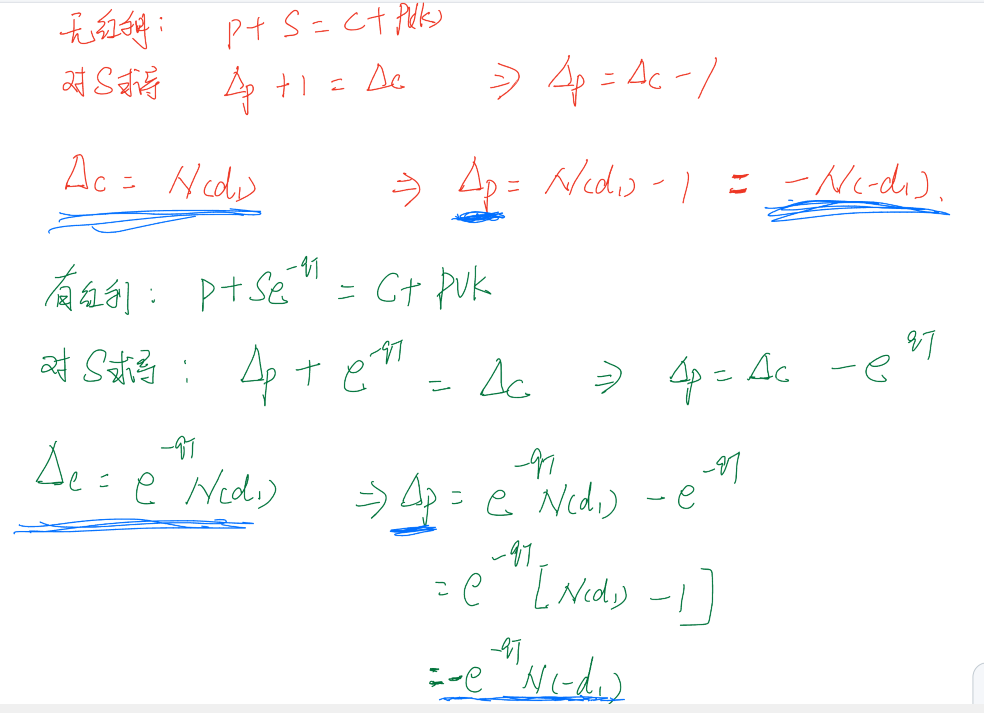 无红利： p + S = C + PV(K)
对S求得 Δp + 1 = Δc ⇒ Δp = Δc - 1
Δc = N(d₁) ⇒ Δp = N(d₁) - 1 = -N(-d₁).
有红利： p + Se^{-qT} = C + PVK
对S求得： Δp + e^{-qT} = Δc ⇒ Δp = Δc - e^{qT}
Δc = e^{-qT} N(d₁) ⇒ Δp = e^{-qT} N(d₁) - e^{-qT}
= e^{-qT} [N(d₁) - 1]
= -e^{-qT} N(-d₁)